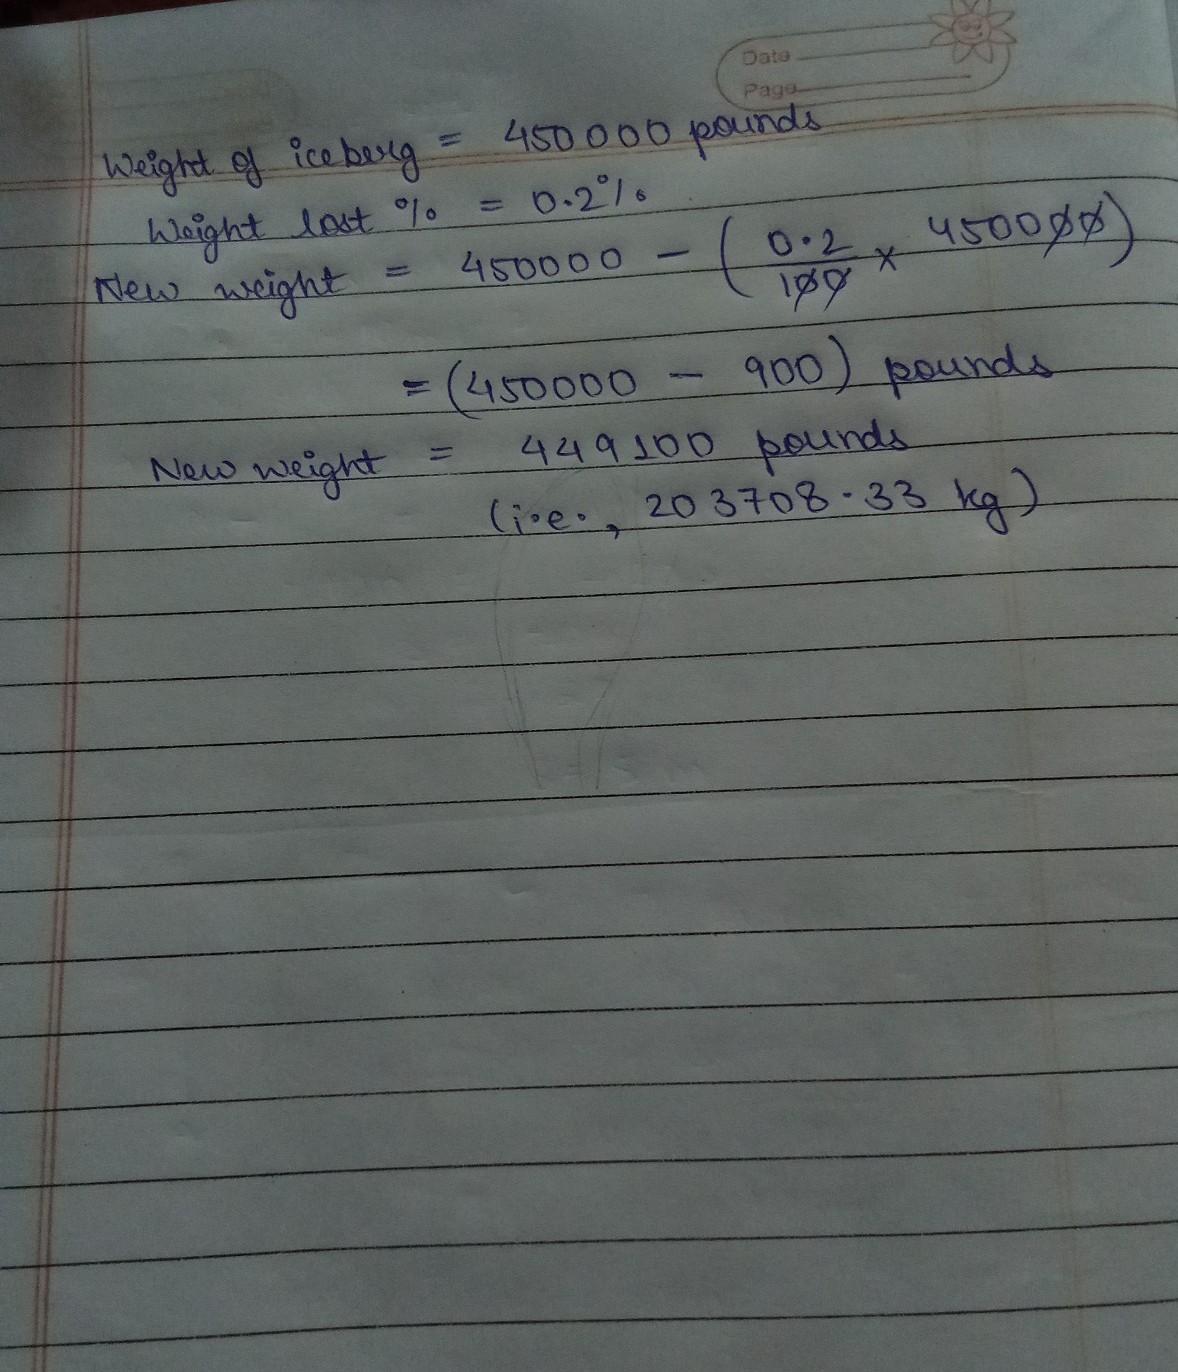 Date
Page
Weight of iceberg = 450000 pounds
Weight lost % = 0.2%
New weight = 450000 - ( 0.2/100 × 450000 )
= (450000 - 900) pounds
New weight = 449100 pounds
(i.e., 203708.33 kg)